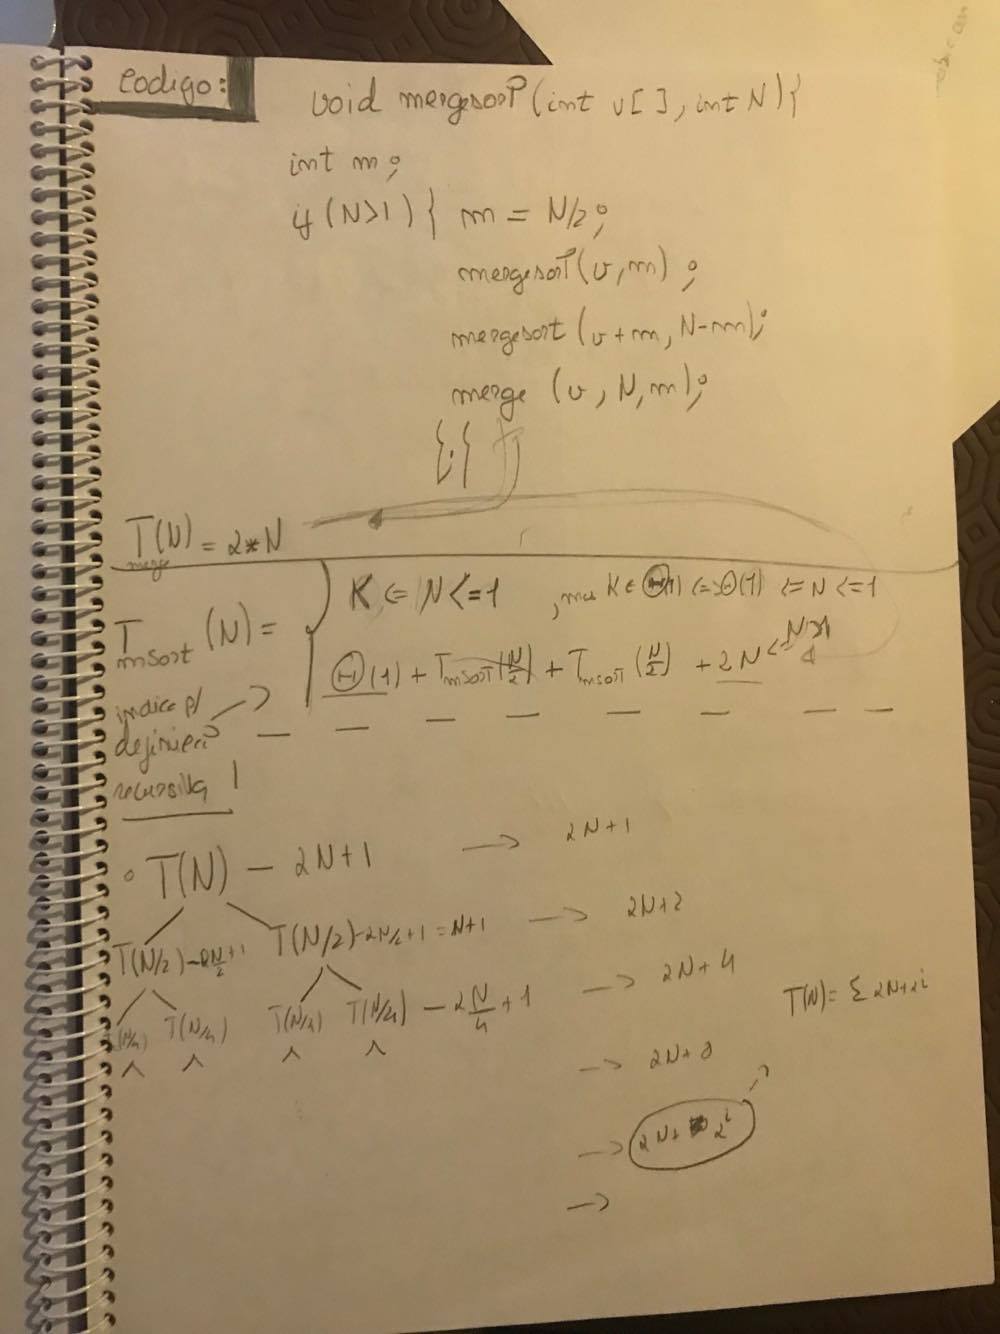 Codigo:
void mergesort(int v[], int N){
int m;
if (N>1) { m = N/2;
mergesort(v,m);
mergesort(v+m, N-m);
merge (v, N, m);
}.}
T merge (N) = 2*N
T msort (N) = { K <= N<=1 , mas K ∈ Θ(1) <=> Θ(1) <= N <=1
Θ(1) + Tmsort(N/2) + Tmsort(N/2) + 2N <= N>1
indice p/
recursiva
T(N) - 2N+1 -> 2N+1
T(N/2) - 2N/2+1 T(N/2) - 2N/2+1 = N+1 -> 2N+2
T(N/4) T(N/4) T(N/4) T(N/4) - 2N/4+1 -> 2N+4
T(N) = Σ 2N+2^i
-> 2N+8
-> 2N+ 2^i
->